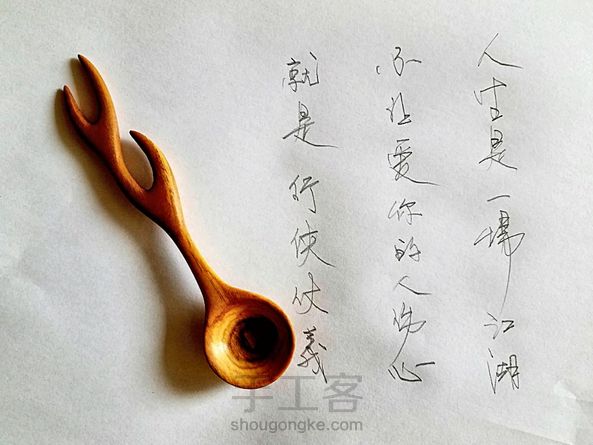 人生是一場江湖
不让爱你的人伤心
就是行侠仗義
手工客
shougongke.com